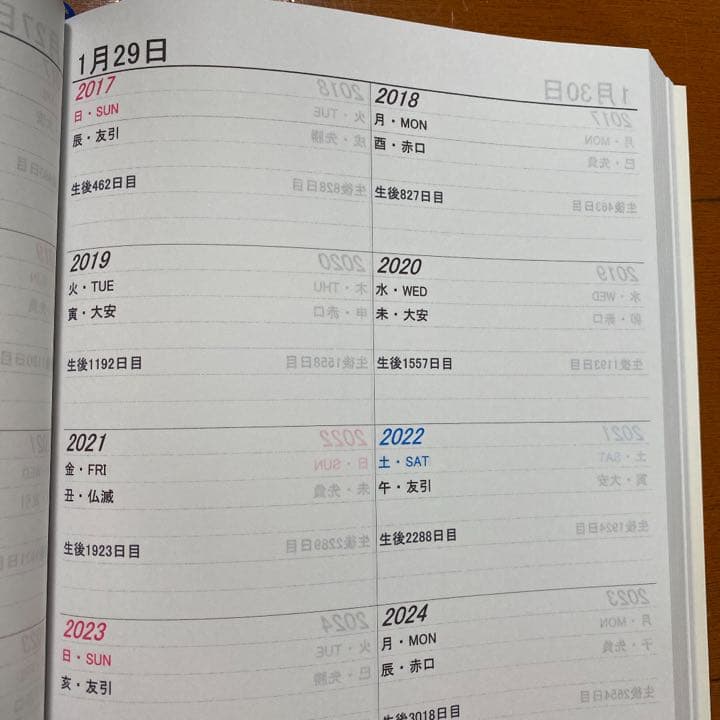 1月29日
2017
日・SUN
辰・友引
生後462日目
2018
月・MON
酉・赤口
生後827日目
2019
火・TUE
寅・大安
生後1192日目
2020
水・WED
未・大安
生後1557日目
2021
金・FRI
丑・仏滅
生後1923日目
2022
土・SAT
午・友引
生後2288日目
2023
日・SUN
亥・友引
2024
月・MON
辰・赤口
生後3018日目